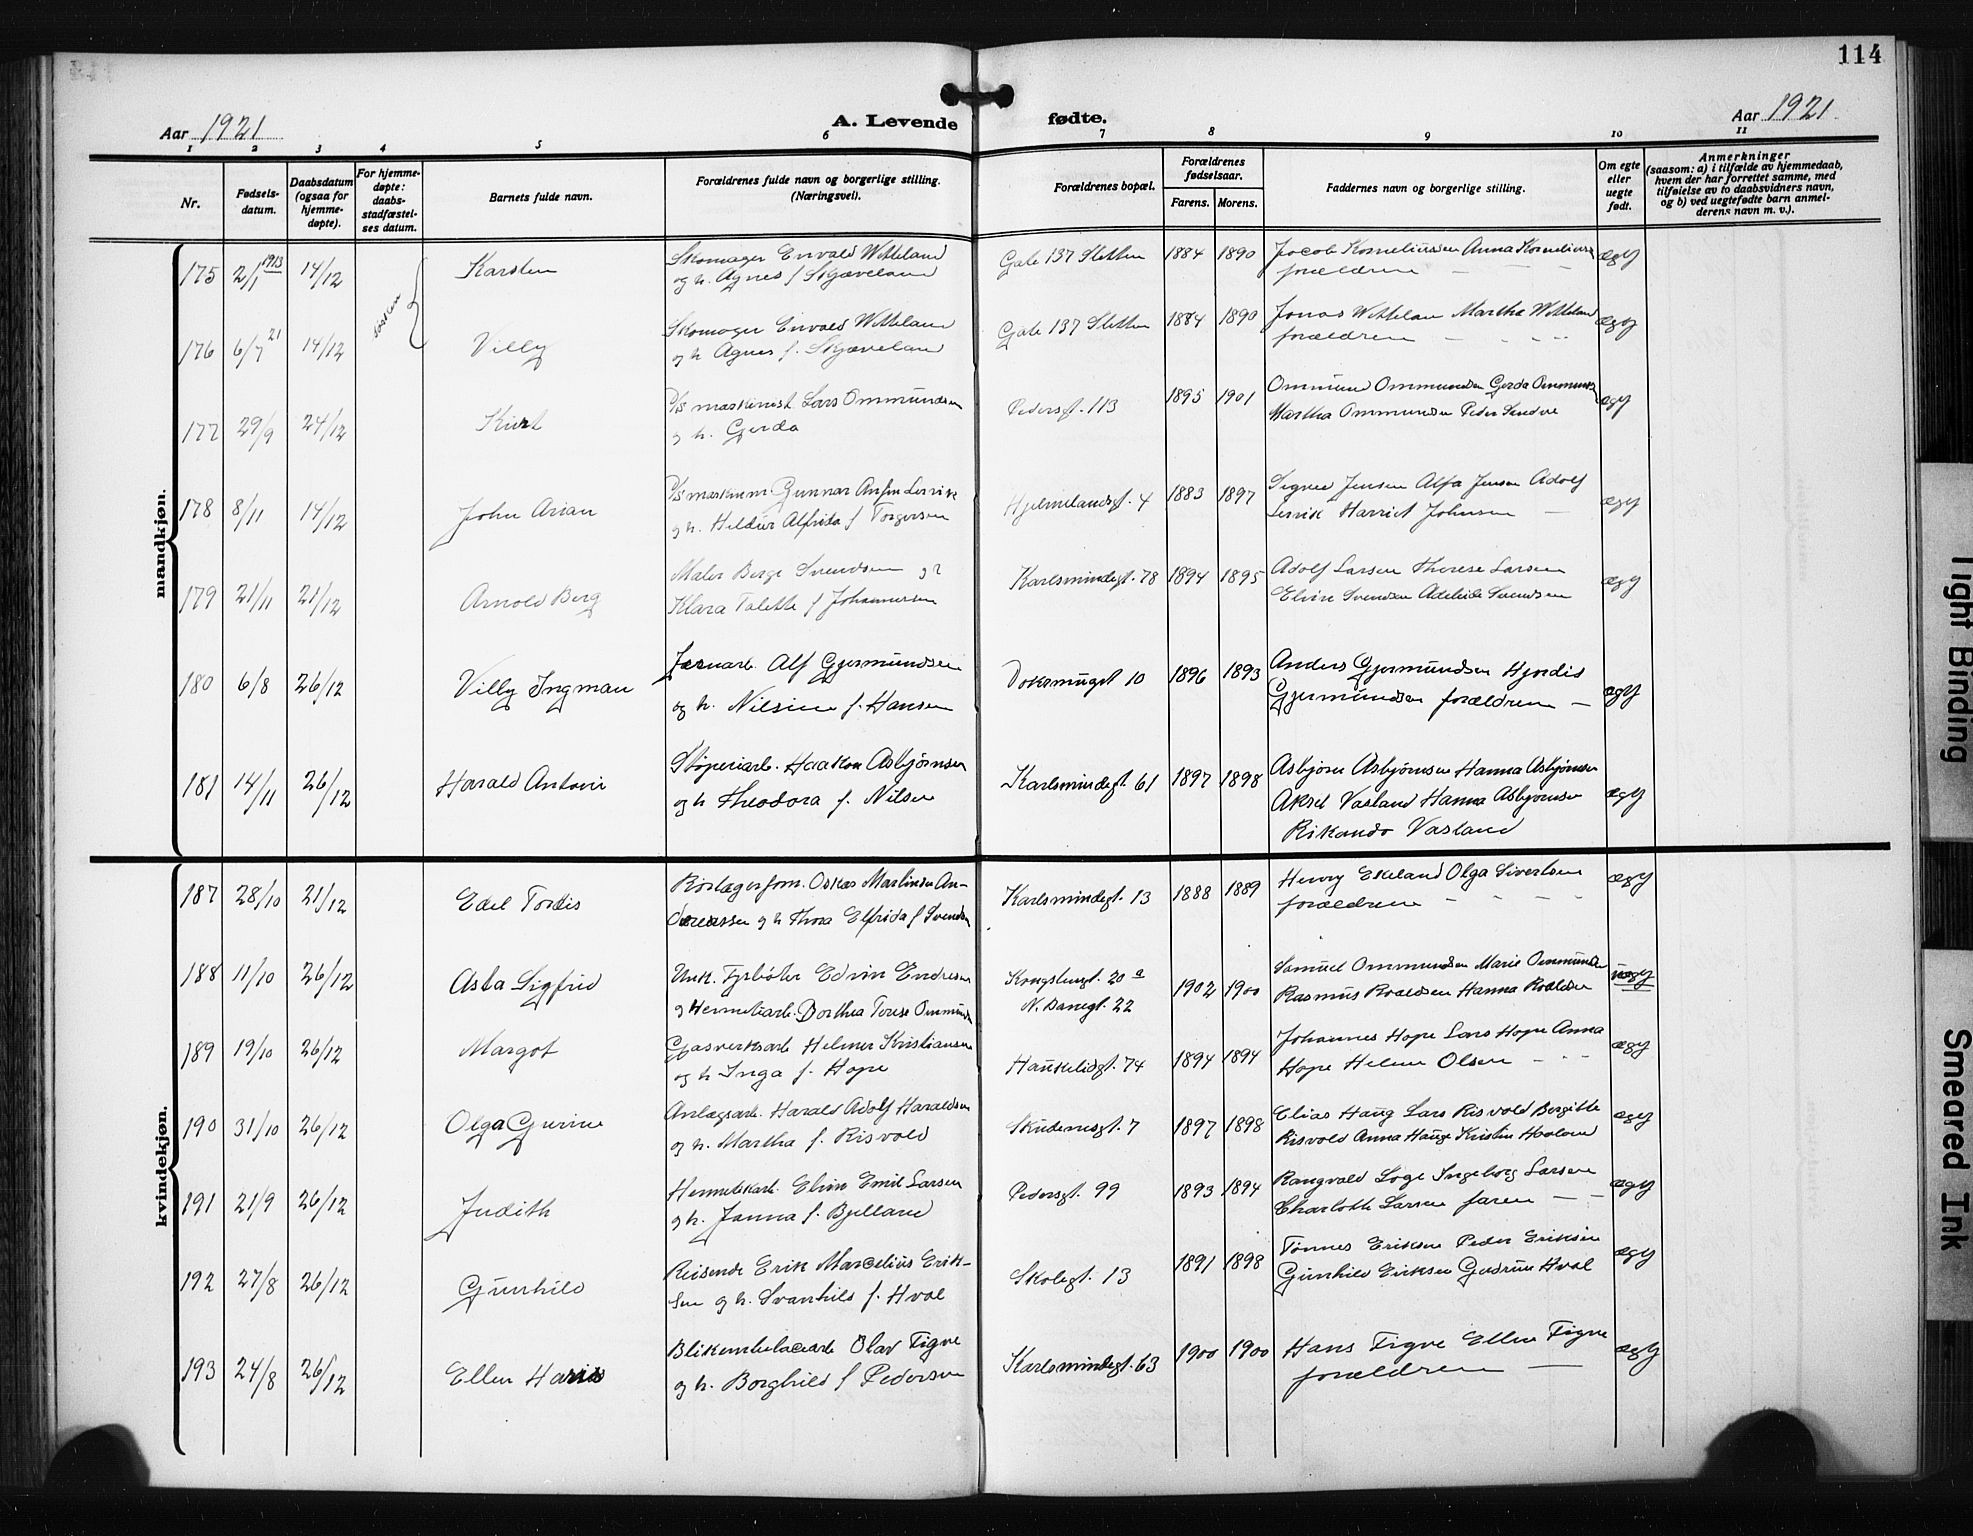 114
Aar 1921
A. Levende fødte.
Aar 1921
1 2 3 4 5 6 7 8 9 10 11
Nr.
Fødsels-
datum.
Daabsdatum
(ogsaa for
hjemme-
døpte).
For hjemme-
døpte:
daabs-
stadfæstel-
ses datum.
Barnets fulde navn.
Forældrenes fulde navn og borgerlige stilling.
(Næringsvei).
Forældrenes bopæl.
Forældrenes
fødselsaar.
Farens. Morens.
Faddernes navn og borgerlige stilling.
Om egte
eller
uegte
født.
Anmerkninger
(saasom: a) i tilfælde av hjemmedaab,
hvem der har forrettet samme, med
tilføielse av to daabsvidners navn,
og b) ved uegtefødte barn anmel-
derens navn m. v.).
mandkjøn.
175 2/1 1913 14/12 Karsten
Skomager Envald Wetteland
og h. Agnes f Skjæveland
Gate 137 Sletten 1884 1890
Jacob Korneliussen Anna Korneliussen
forældrene
ægt
176 6/7 21 14/12 Villy
Skomager Envald Wetteland
og h. Agnes f. Skjæveland
Gate 137 Sletten 1884 1890
Jonas Wetteland Martha Wetteland
forældrene
ægt
177 29/9 24/12 Kurt
D/s maskinist Lars Ommundsen
og h. Gerda
Pedersgt. 113 1895 1901
Ommund Ommundsen Gerda Ommundsen
Martha Ommundsen Peder
ægt
178 8/11 14/12 John Arian
D/s maskinm. Gunnar Lervik
og h. Alfrida f Torgersen
Hjelmelandsgt. 4 1883 1897
Signe Jensen Alfa Jensen Adolf
Lervik Harriet Johnsen
ægt
179 21/11 21/12 Arnold Berg
Maler Berge Svendsen og h
Klara Talette f Johannesen
Karlsmindegt. 78 1894 1895
Adolf Larsen Therese Larsen
Elvin Svendsen Adeleide Svendsen
ægt
180 6/8 26/12 Villy Ingman
Jernarb. Alf Gjermundsen
og h. Nilsine f. Hansen
Doksmuget 10 1896 1893
Anders Gjermundsen Hjordis
Gjermundsen forældrene
ægt
181 14/11 26/12 Harald Antoni
Støperiarb. Haakon Asbjørnsen
og h Theodora f. Nilsen
Karlsmindegt 61 1897 1898
Asbjørn Asbjørnsen Hanna Asbjørnsen
Aksel Vasland Hanna Asbjørnsen
Rikanda Vasland
ægt
kvindekjøn.
187 28/10 21/12 Edel Tordis
Rørlægerform. Oskar Martinsen An-
dreassen og h Thora Elfrida f Svendsen
Karlsmindegt. 13 1888 1889
Henry Ekeland Olga Sivertsen
forældrene
ægt
188 11/10 26/12 Asta Sigfrid
Unk. Fyrbøter Edvin Endresen
og Hermetikarb. Dorthea Terese Ommundsen
Kongstengt. 20 a
N. Banegt. 22
1902 1900
Samuel Ommundsen Marie Ommundsen
Rasmus Roaldsen Hanna Roaldsen
uægt
189 19/10 26/12 Margot
Gasverksarb Helmer Kristiansen
og h Inga f. Hope
Haukelidgt. 74 1894 1894
Johannes Hope Lars Hope Anna
Hope Helene Olsen
ægt
190 31/10 26/12 Olga Gurine
Anlægsarb. Harald Adolf Haraldsen
og h. Martha f. Risvold
Skudenesgt. 7 1897 1898
Elias Haug Lars Risvold Bergitte
Risvold Anna Hauge Kristin
ægt
191 21/9 26/12 Judith
Hermetikarb. Elvin Emil Larsen
og h. Janna f. Bjelland
Pedersgt. 99 1893 1894
Rangvald Loge Ingeborg Larsen
Charlotte Larsen faren
ægt
192 27/8 26/12 Gunhild
Reisende Erik Marcelius Erik-
sen og h. Svanhild f. Hval
Skolegt. 13 1891 1898
Tønnes Eriksen Peder Eriksen
Gunhild Eriksen Gudrun Hval
ægt
193 24/8 26/12 Ellen
Blikemballagearb Olav Tigve
og h. Borghild f Pedersen
Karlsmindegt. 63 1900 1900
Hans Tigve Ellen Tigve
forældrene
ægt
Tight Binding
Smeared Ink